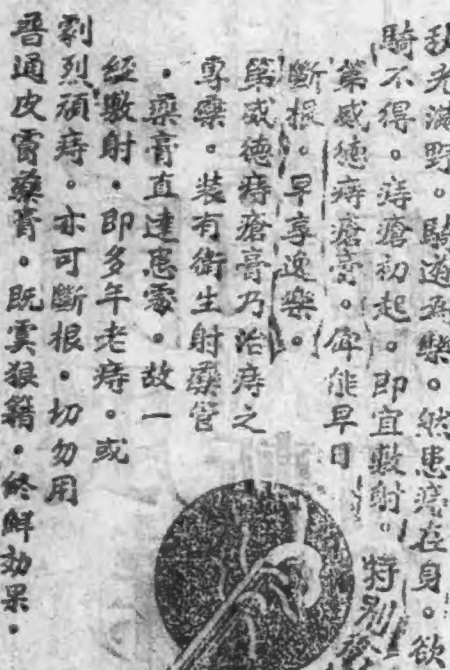 秋光滿野。騎遊爲樂。然患痔在身。欲
騎不得。痔瘡初起。即宜敷射。特別
第威德痔瘡膏。俾能早日
斷根。早享逸樂。
第威德痔瘡膏乃治痔之
專藥。裝有衛生射藥管
。藥膏直達患處。故一
經敷射。即多年老痔。或
劇烈頑痔。亦可斷根。切勿用
普通皮膚藥膏。既虞狼籍。終鮮効果。